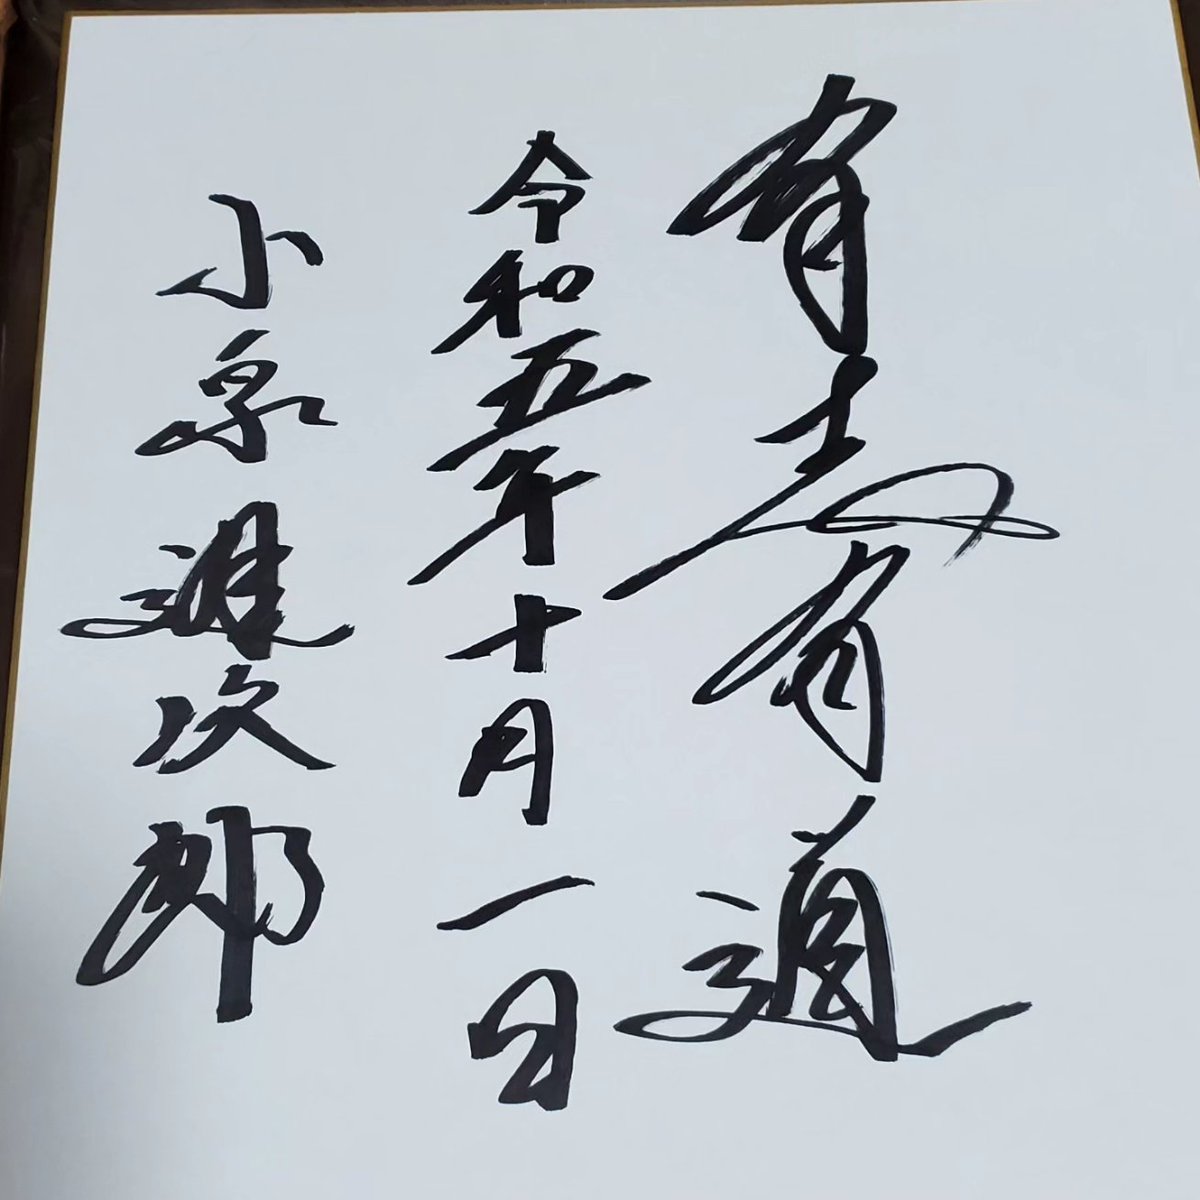 有志有道
令和五年十月一日
小泉進次郎